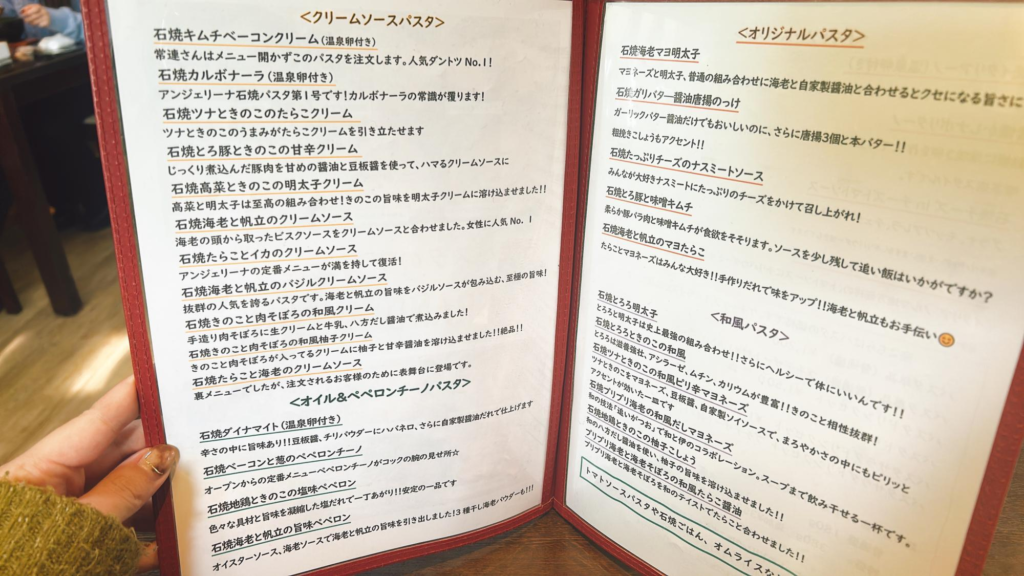 <クリームソースパスタ>
石焼キムチベーコンクリーム(温泉卵付き)
常連さんはメニュー開かずこのパスタを注文します。人気ダントツ No.1!
石焼カルボナーラ(温泉卵付き)
アンジェリーナ石焼パスタ第1号です!カルボナーラの常識が覆ります!
石焼ツナときのこのたらこクリーム
ツナときのこのうまみがたらこクリームを引き立たせます
石焼とろ豚ときのこの甘辛クリーム
じっくり煮込んだ豚肉を甘めの醤油と豆板醤を使って、ハマるクリームソースに
石焼高菜ときのこの明太子クリーム
高菜と明太子は至高の組み合わせ!きのこの旨味を明太子クリームに溶け込ませました!!
石焼海老と帆立のクリームソース
海老の頭から取ったビスクソースをクリームソースと合わせました。女性に人気 No.1
石焼たらことイカのクリームソース
アンジェリーナの定番メニューが満を持して復活!
石焼海老と帆立のバジルクリームソース
抜群の人気を誇るパスタです。海老と帆立の旨味をバジルソースが包み込む、至極の旨味!
石焼きのこと肉そぼろの和風クリーム
手造り肉そぼろに生クリームと牛乳、八方だし醤油で煮込みました!
石焼きのこと肉そぼろの和風柚子クリーム
きのこと肉そぼろが入ってるクリームに柚子と甘辛醤油を溶け込ませました!!絶品!!
石焼たらこと海老のクリームソース
裏メニューでしたが、注文されるお客様のために表舞台に登場です。
<オイル&ペペロンチーノパスタ>
石焼ダイナマイト(温泉卵付き)
辛さの中に旨味あり!!豆板醤、チリパウダーにハバネロ、さらに自家製醤油だれで仕上げます
石焼ベーコンと葱のペペロンチーノ
オープンからの定番メニューペペロンチーノがコックの腕の見せ所☆
石焼地鶏ときのこの塩味ペペロン
色々な具材と旨味を凝縮した塩だれで一丁あがり!!安定の一品です
石焼海老と帆立の旨味ペペロン
オイスターソース、海老ソースで海老と帆立の旨味を引き出しました!3種干し海老パウダーも!!!
<オリジナルパスタ>
石焼海老マヨ明太子
マヨネーズと明太子、普通の組み合わせに海老と自家製醤油と合わせるとクセになる旨さに
石焼ガリバター醤油唐揚のっけ
ガーリックバター醤油だけでもおいしいのに、さらに唐揚3個と本バター!!
粗挽きこしょうもアクセント!!
石焼たっぷりチーズのナスミートソース
みんなが大好きナスミートにたっぷりのチーズをかけて召し上がれ!
石焼とろ豚と味噌キムチ
柔らか豚バラ肉と味噌キムチが食欲をそそります。ソースを少し残して追い飯はいかがですか?
石焼海老と帆立のマヨたらこ
たらことマヨネーズはみんな大好き!!手作りだれで味をアップ!!海老と帆立もお手伝い
<和風パスタ>
石焼とろろ明太子
とろろと明太子は史上最強の組み合わせ!!さらにヘルシーで体にいいんです!!
石焼とろろときのこの和風
とろろは滋養強壮、アシラーゼ、ムチン、カリウムが豊富!!きのこと相性抜群!
石焼ツナときのこの和風ピリ辛マヨネーズ
ツナときのこをマヨネーズ、豆板醤、自家製ソイソースで、まろやかさの中にもピリッと
アクセントが効いた一皿です
石焼プリプリ海老の和風だしマヨネーズ
和の技法「追いがつお」で和と伊のコラボレーション。スープまで飲み干せる一杯です。
石焼地鶏ときのこの柚子こしょう
和の八方だし醤油を使い、柚子の旨味を溶け込ませました!!
プリプリ海老と海老そぼろの和風たらこ醤油
プリプリ海老と海老そぼろを和のテイストでたらこと合わせました!!
トマトソースパスタや石焼ごはん、オムライスな